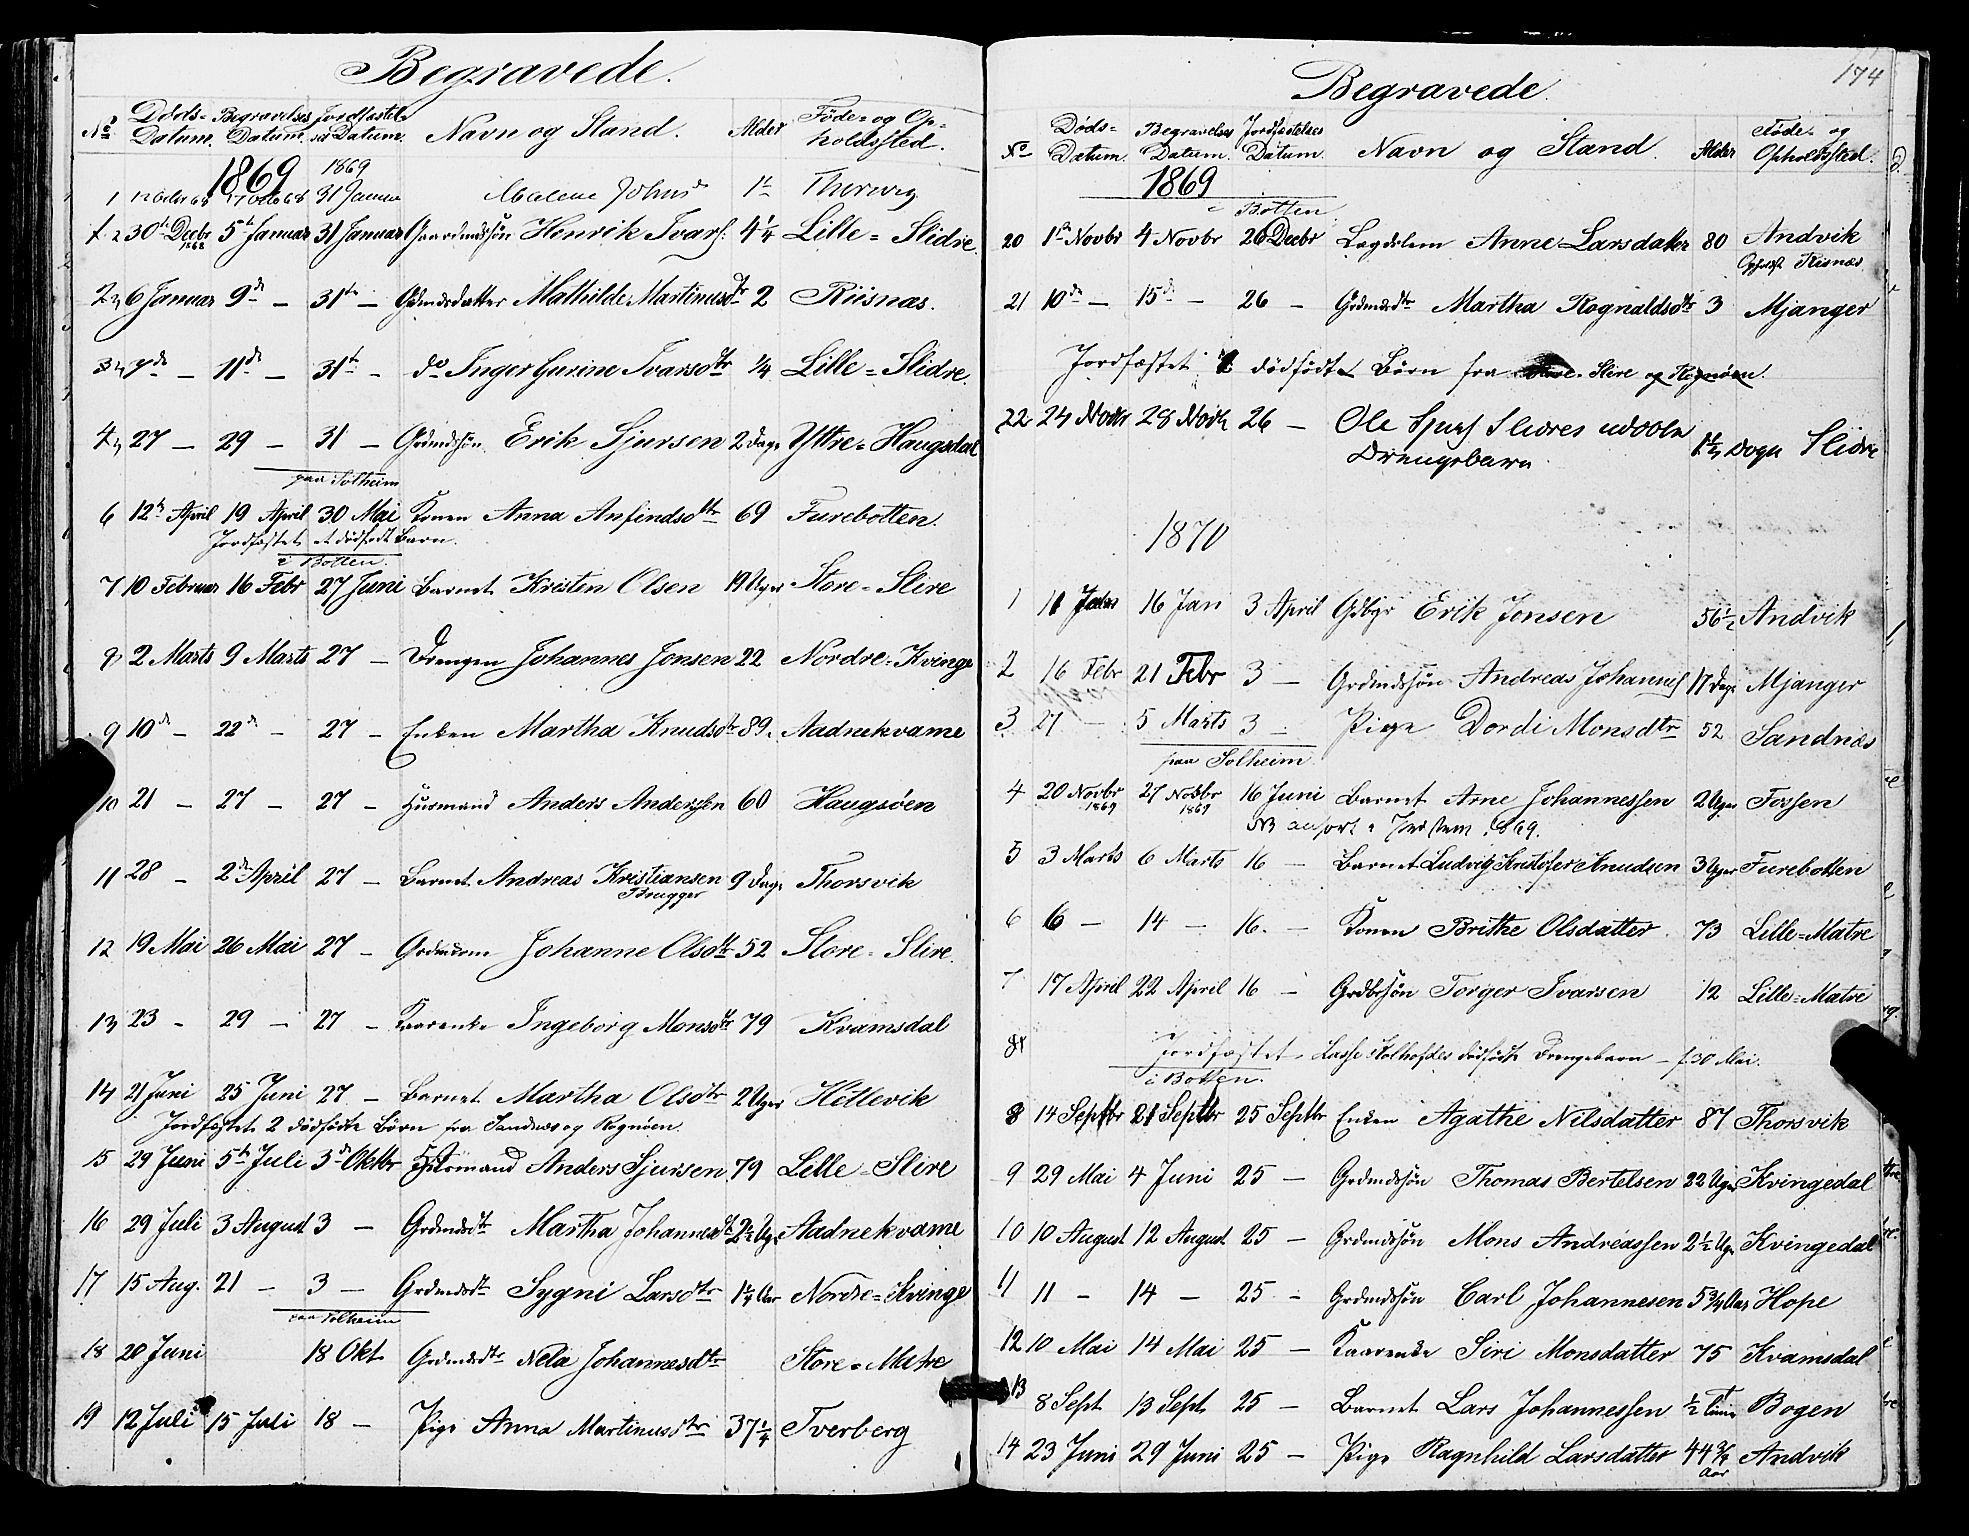 Begravede.
No Döds-Datum. Begravelses Datum. Jordfæstelses Datum. Navn og Stand. Alder Föde- og Opholdssted.
1869 1869
1 31 Januar Malene Johns
2 30te Decbr 1868 5te Januar 31 Januar Gaardmdssön Henrik Ivars. 4 1/4 Lille-Slidre.
6 Januar 9de — 31te — Gdmdsdatter Mathilde Martinusdtr 2 Riisnæs.
7de — 11de — 31te — do Inger Gurine Ivarsdtr 1/4 Lille-Slidre.
27 — 29 — 31 — Grdmdssön Erik Sjursen 2 Dage Yttre-Haugsdal
paa Solheim
6 12te April 19 April 30 Mai Konen Anna Anfindsdtr 69 Furebotten.
Jordfæstet et dödfödt Barn.
i Botten.
7 10 Februar 16 Febr 27 Juni Barnet Kristen Olsen 19 Uger Store-Slire
8 2 Marts 9 Marts 27 — Drengen Johannes Jonsen 22 Nordre-Kvinge
9 10de — 22de — 27 — Enken Martha Knudsdtr 89. Aadnekvame
10 21 — 27 — 27 — Husmand Anders Anderssen 60 Haugsøen
11 28 — 2den April 27 — Barnet Andreas Kristiansen Brugger 9 Dage Thorsvik
12 19 Mai 26 Mai 27 — Johanne Olsdtr 52 Store-Slire.
13 23 — 29 — 27 — Kaarenke Ingeborg Monsdtr 79 Kvamsdal
14 21 Juni 25 Juni 27 — Barnet Martha Olsdtr 2 Uger Hillevik
Jordfæstet 2 dödfödte Börn fra Sandnæs og Rognöen.
15 29 Juni 5te Juli 3de Oktbr Husmand Anders Sjursen 79 Lille-Slire
16 29 Juli 3 August 3 — Grdmdsdtr Martha Johannesdtr 2 1/2 Uge Aadnekvame
17 15 Aug. 21 — 3 — Grdmdsdtr Sygni Larsdtr 1 1/4 Aar Nordre-Kvinge
paa Solheim
18 20 Juni 18 Okt Grdmdsdtr Nela Johannesdtr Store-Matre
19 12 Juli 15 Juli 18 — Pige Anna Martinusdtr 37 1/4 Tverberg
174
Begravede.
No Döds-Datum. Begravelses Datum. Jordfæstelses Datum. Navn og Stand. Alder Föde- og Opholdssted.
1869
i Botten.
20 1ste Novbr 4 Novbr 26 Decbr Lægdslem Anne Larsdatter 80 Andvik
Opholdst Risnæs
21 10de — 15de — 26 — Grdmdsdtr Martha Rognaldsdtr 3 Mjanger
Jordfæstet dödfödt Börn fra Slire og Rognöen.
22 24 Novbr 28 Novbr 26 — Ole Sjurs Slidres udöbte
Drengebarn 1 1/2 Dögn Slidre
1870
1 11 Jan 16 Jan 3 April Gdbgr Erik Jonsen 56 1/2 Andvik
2 16 Febr 21 Febr 3 — Grdmdssön Andreas Johanns 17 Dage Mjanger
3 27 — 5 Marts 3 — Pige Dordi Monsdtr 52 Sandnæs
paa Solheim.
4 20 Novbr 1869 27 Novbr 1869 16 Juni Barnet Arne Johannessen 2 Uger Fossen
NB anfört 1869.
5 3 Marts 6 Marts 16 — Barnet Ludvig Kristofer Knudsen 3 Uger Furebotten
6 6 — 14 — 16. — Konen Brithe Olsdatter. 73 Lille-Matre
7 17 April 22 April 16 — Grdbrsön Torger Ivarsen 12 Lille-Matre
Jordfæstet Lasse dödfödte Drengebarn — f. 30 Mai.
i Botten.
8 14 Septbr 21 Septbr 25 Septbr Enken Agathe Nilsdatter 87 Thorsvik
9 29 Mai 4 Juni 25 — Grdmdssön Thomas Bertelsen 22 Uger Kvingedal
10 10 August 12 August 25 — Grdmdssön Mons Andreassen 2 1/2 Uge Kvingedal
11 11 — 14 — 25 — Grdmdssön Carl Johannesen 5 3/4 Aar Hope
12 10 Mai 14 Mai 25 — Kaarenke Siri Monsdatter 75 Kvamsdal
13 8 Sept 13 Sept 25 — Barnet Lars Johannessen 1/2 Time Bogen
14 23 Juni 29 Juni 25 — Pige Ragnhild Larsdatter 44 3/4 Aar Andvik